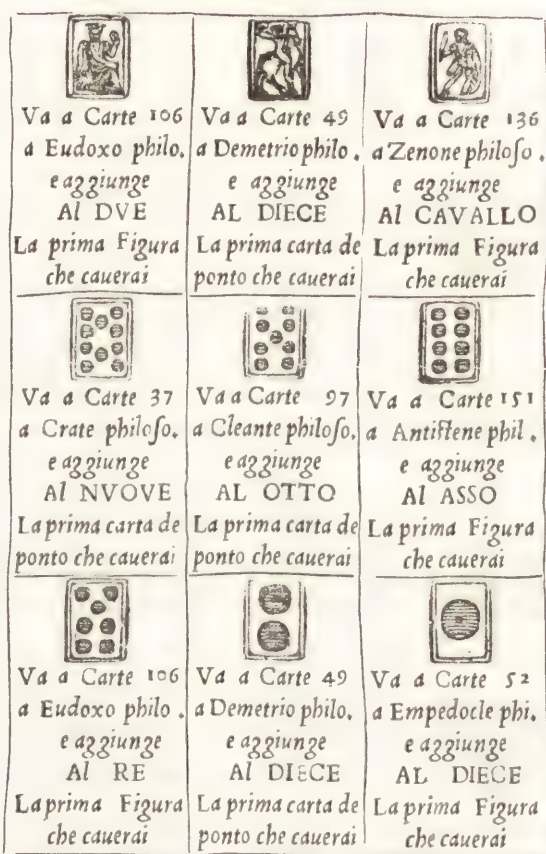 Va a Carte 106
a Eudoxo philo.
e aggiunge
Al DVE
La prima Figura
che cauerai
Va a Carte 49
a Demetrio philo.
e aggiunge
AL DIECE
La prima carta de
ponto che cauerai
Va a Carte 136
a Zenone philoſo.
e aggiunge
Al CAVALLO
La prima Figura
che cauerai
Va a Carte 37
a Crate philoſo.
e aggiunge
Al NVOVE
La prima carta de
ponto che cauerai
Va a Carte 97
a Cleante philoſo.
e aggiunge
AL OTTO
La prima carta de
ponto che cauerai
Va a Carte 151
a Antiſtene phil.
e aggiunge
Al ASSO
La prima Figura
che cauerai
Va a Carte 106
a Eudoxo philo.
e aggiunge
Al RE
La prima Figura
che cauerai
Va a Carte 49
a Demetrio philo.
e aggiunge
Al DIECE
La prima carta de
ponto che cauerai
Va a Carte 52
a Empedocle phi.
e aggiunge
AL DIECE
La prima Figura
che cauerai